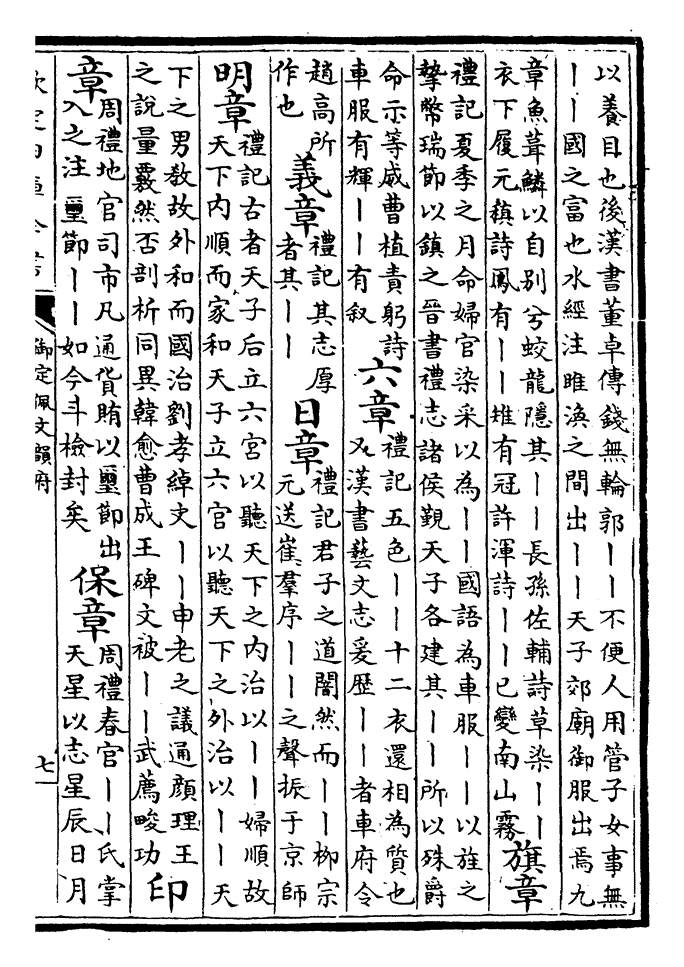 以養目也後漢書董卓傳錢無輪郭丨丨不便人用管子女事無
丨丨國之富也水經注睢渙之間出丨丨天子郊廟御服出焉九
章魚葺鱗以自别兮蛟龍隱其丨丨長孫佐輔詩草染丨丨
衣下履元稹詩鳳有丨丨雉有冠許渾詩丨丨已變南山霧
旗章
禮記夏季之月命婦官染采以為丨丨國語為車服丨丨以旌之
摯幣瑞節以鎮之晉書禮志諸侯覲天子各建其丨丨所以殊爵
命示等威曹植責躬詩
車服有輝丨丨有叙
六章
禮記五色丨丨十二衣還相為質也
又漢書藝文志爰歴丨丨者車府令
趙髙所
作也
義章
禮記其志厚
者其丨丨
日章
禮記君子之道闇然而丨丨柳宗
元送崔羣序丨丨之聲振于京師
明章
禮記古者天子后立六宮以聽天下之内治以丨丨婦順故
天下内順而家和天子立六官以聽天下之外治以丨丨天
下之男教故外和而國治劉孝綽文丨丨申老之議通顔理王
之說量覈然否剖析同異韓愈曹成王碑文被丨丨武薦畯功
印章
周禮地官司市凡通貨賄以璽節出
入之注璽節丨丨如今斗檢封矣
保章
周禮春官丨丨氏掌
天星以志星辰日月
欽定四庫全書
御定佩文韻府
七